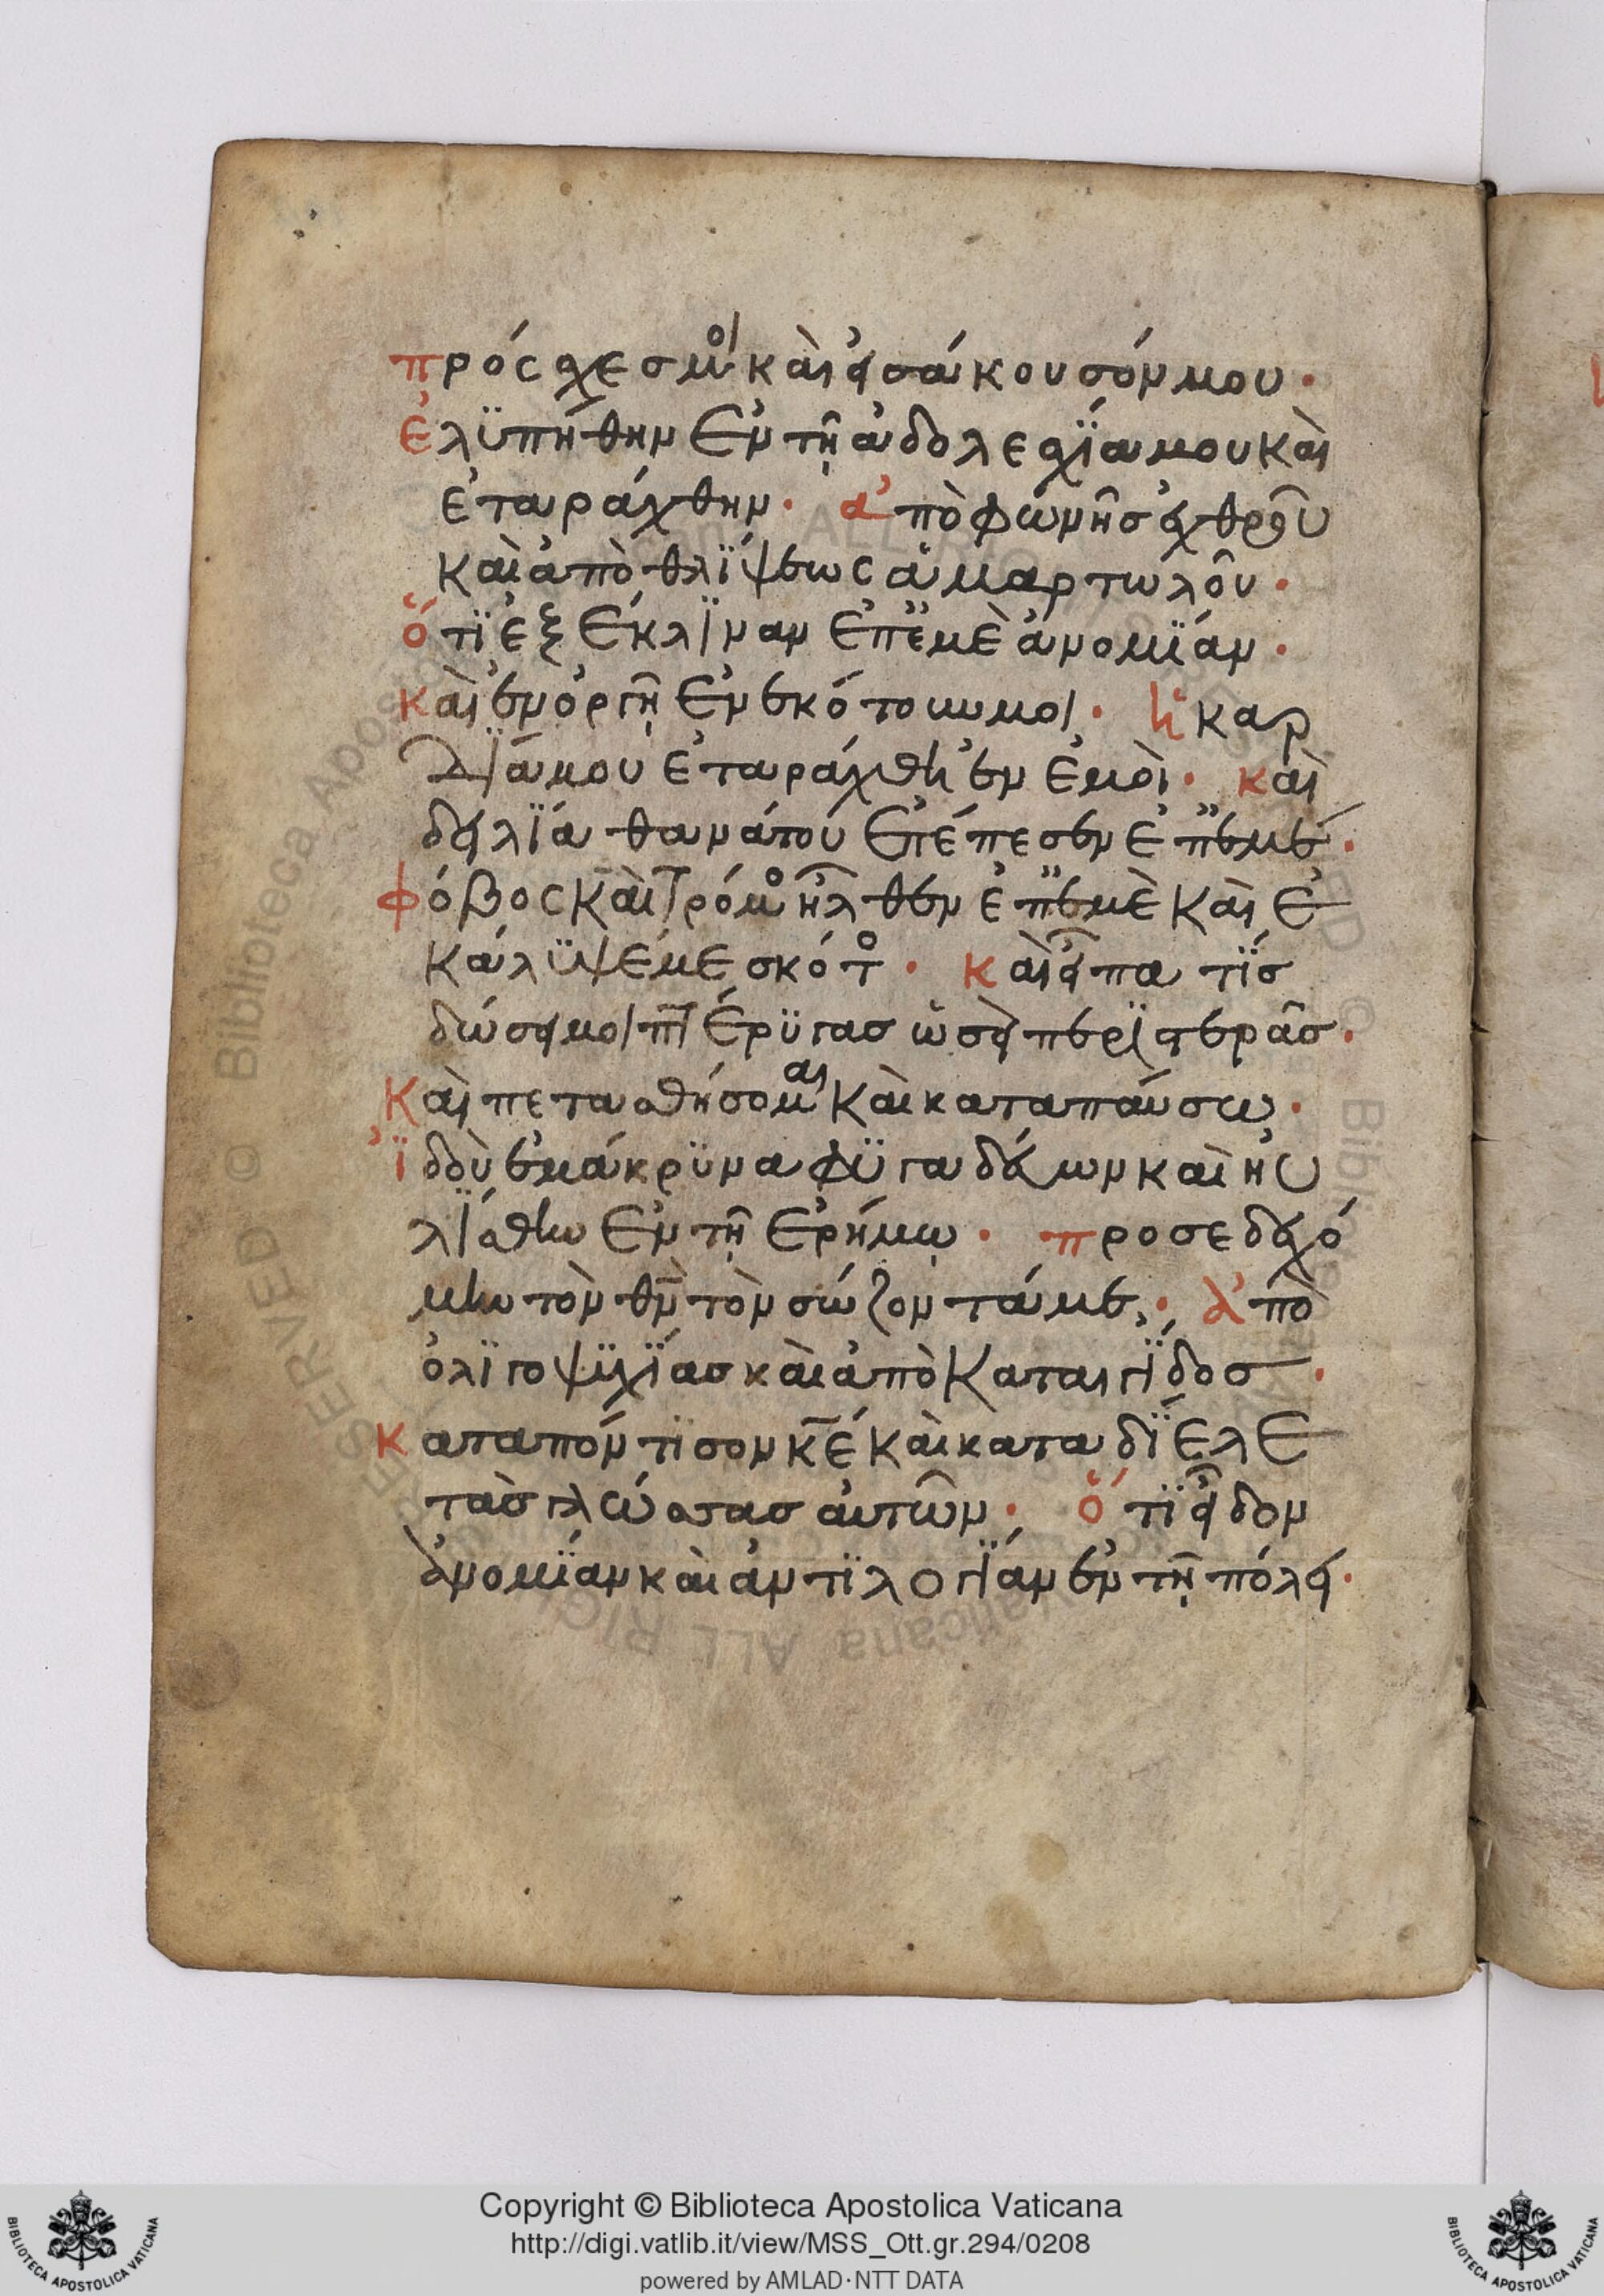 πρόσχες μοι καὶ εἰσάκουσόν μου·
ἐλϋπήθην ἐν τῇ ἀδολεσχΐα μου καὶ
ἐταράχθην· ἀπὸ φωνῆς ἐχθροῦ
καὶ ἀπὸ θλΐψεως ἁμαρτωλοῦ·
ὅτϊ ἐξέκλϊναν ἐπ' ἐμὲ ἀνομΐαν·
καὶ ἐν ὀργῇ ἐνεκότουν μοι· ἡ καρ
δΐα μου ἐταράχθη ἐν ἐμοὶ· καὶ
δειλΐα θανάτου ἐπέπεσεν ἐπ' ἐμέ·
φόβος καὶ τρόμος ἦλθεν ἐπ' ἐμὲ καὶ ἐ
κάλϋψέ με σκότος· καὶ εἶπα τΐς
δώσει μοι πτ έρϋγας ὡσεὶ περϊστερᾶς·
καὶ πετασθήσομαι καὶ καταπαύσω·
ἰδοὺ ἐμάκρϋνα φϋγαδεύων καὶ ηὐ
λΐσθην ἐν τῇ ἐρήμῳ· προσεδεχό
μην τὸν θν τὸν σώζοντά με· ἀπὸ
ὀλϊγοψϋχΐας καὶ ἀπὸ καταιγΐδος·
καταπόντϊσον κε καὶ καταδΐελε
τὰς γλώσσας αὐτῶν· ὅτϊ εἶδον
ἀνομΐαν καὶ ἀντϊλογΐαν ἐν τῇ πόλει·
Copyright © Biblioteca Apostolica Vaticana
http://digi.vatlib.it/view/MSS_Ott.gr.294/0208
powered by AMLAD·NTT DATA